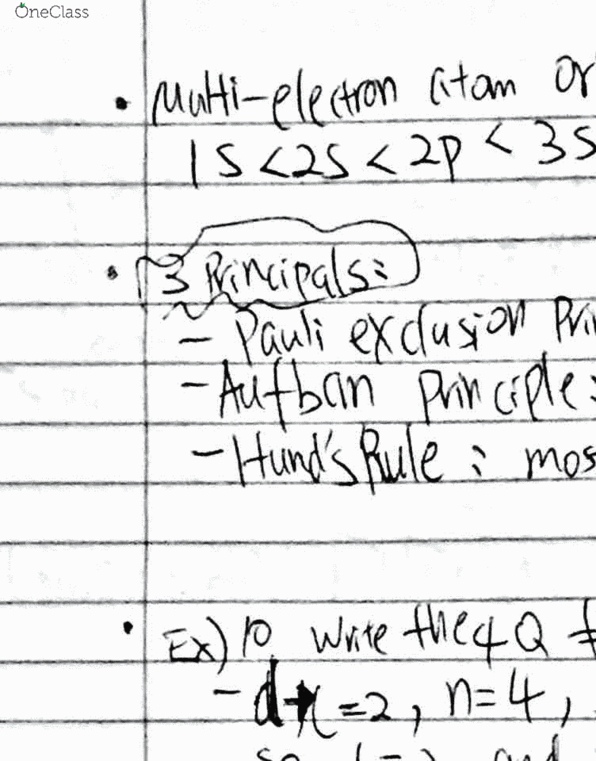 OneClass
• Multi-electron atom or
1s < 2s < 2p < 3s
• 3 Principals:
- Pauli exclusion Prin
- Aufban principle:
- Hund's Rule : mos
• Ex) 10 Write the 4 Q
- d → l = 2, n = 4,
so l = 2 and